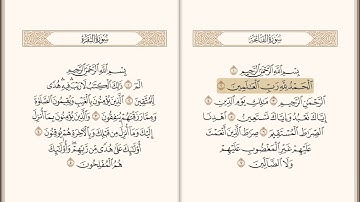 سُورَةُ الفَاتِحَة
بِسْمِ اللَّهِ الرَّحْمَٰنِ الرَّحِيمِ ۝
الْحَمْدُ لِلَّهِ رَبِّ الْعَالَمِينَ ۝
الرَّحْمَٰنِ الرَّحِيمِ ۝ مَالِكِ يَوْمِ الدِّينِ ۝
إِيَّاكَ نَعْبُدُ وَإِيَّاكَ نَسْتَعِينُ ۝ اهْدِنَا
الصِّرَاطَ الْمُسْتَقِيمَ ۝ صِرَاطَ الَّذِينَ أَنْعَمْتَ
عَلَيْهِمْ غَيْرِ الْمَغْضُوبِ عَلَيْهِمْ
وَلَا الضَّالِّينَ ۝
سُورَةُ البَقَرَة
بِسْمِ اللَّهِ الرَّحْمَٰنِ الرَّحِيمِ
الٓمٓ ۝ ذَٰلِكَ الْكِتَابُ لَا رَيْبَ فِيهِ هُدًى
لِلْمُتَّقِينَ ۝ الَّذِينَ يُؤْمِنُونَ بِالْغَيْبِ وَيُقِيمُونَ الصَّلَاةَ
وَمِمَّا رَزَقْنَاهُمْ يُنْفِقُونَ ۝ وَالَّذِينَ يُؤْمِنُونَ بِمَا أُنْزِلَ
إِلَيْكَ وَمَا أُنْزِلَ مِنْ قَبْلِكَ وَبِالْآخِرَةِ هُمْ يُوقِنُونَ ۝
أُولَٰئِكَ عَلَىٰ هُدًى مِنْ رَبِّهِمْ وَأُولَٰئِكَ
هُمُ الْمُفْلِحُونَ ۝